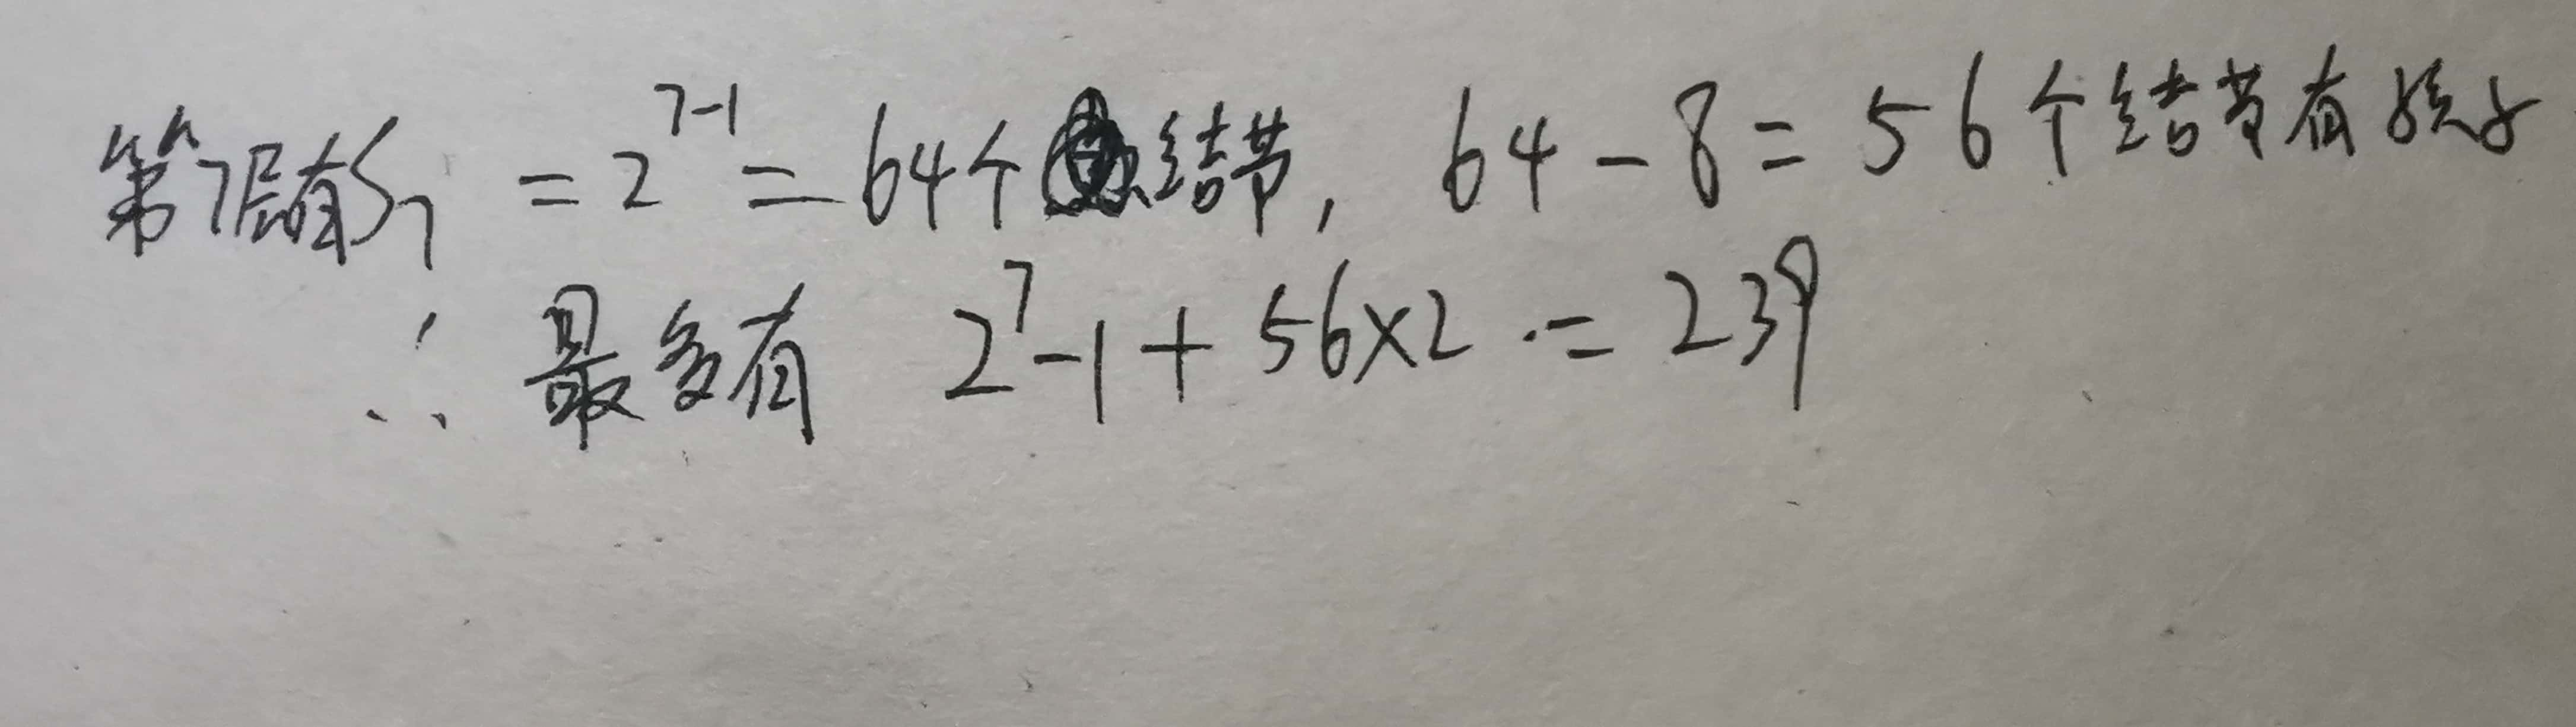 第7层有S₇ = 2⁷⁻¹ = 64个结节, 64-8=56个结节有孩子
∴ 最多有 2⁷-1+56×2 = 239